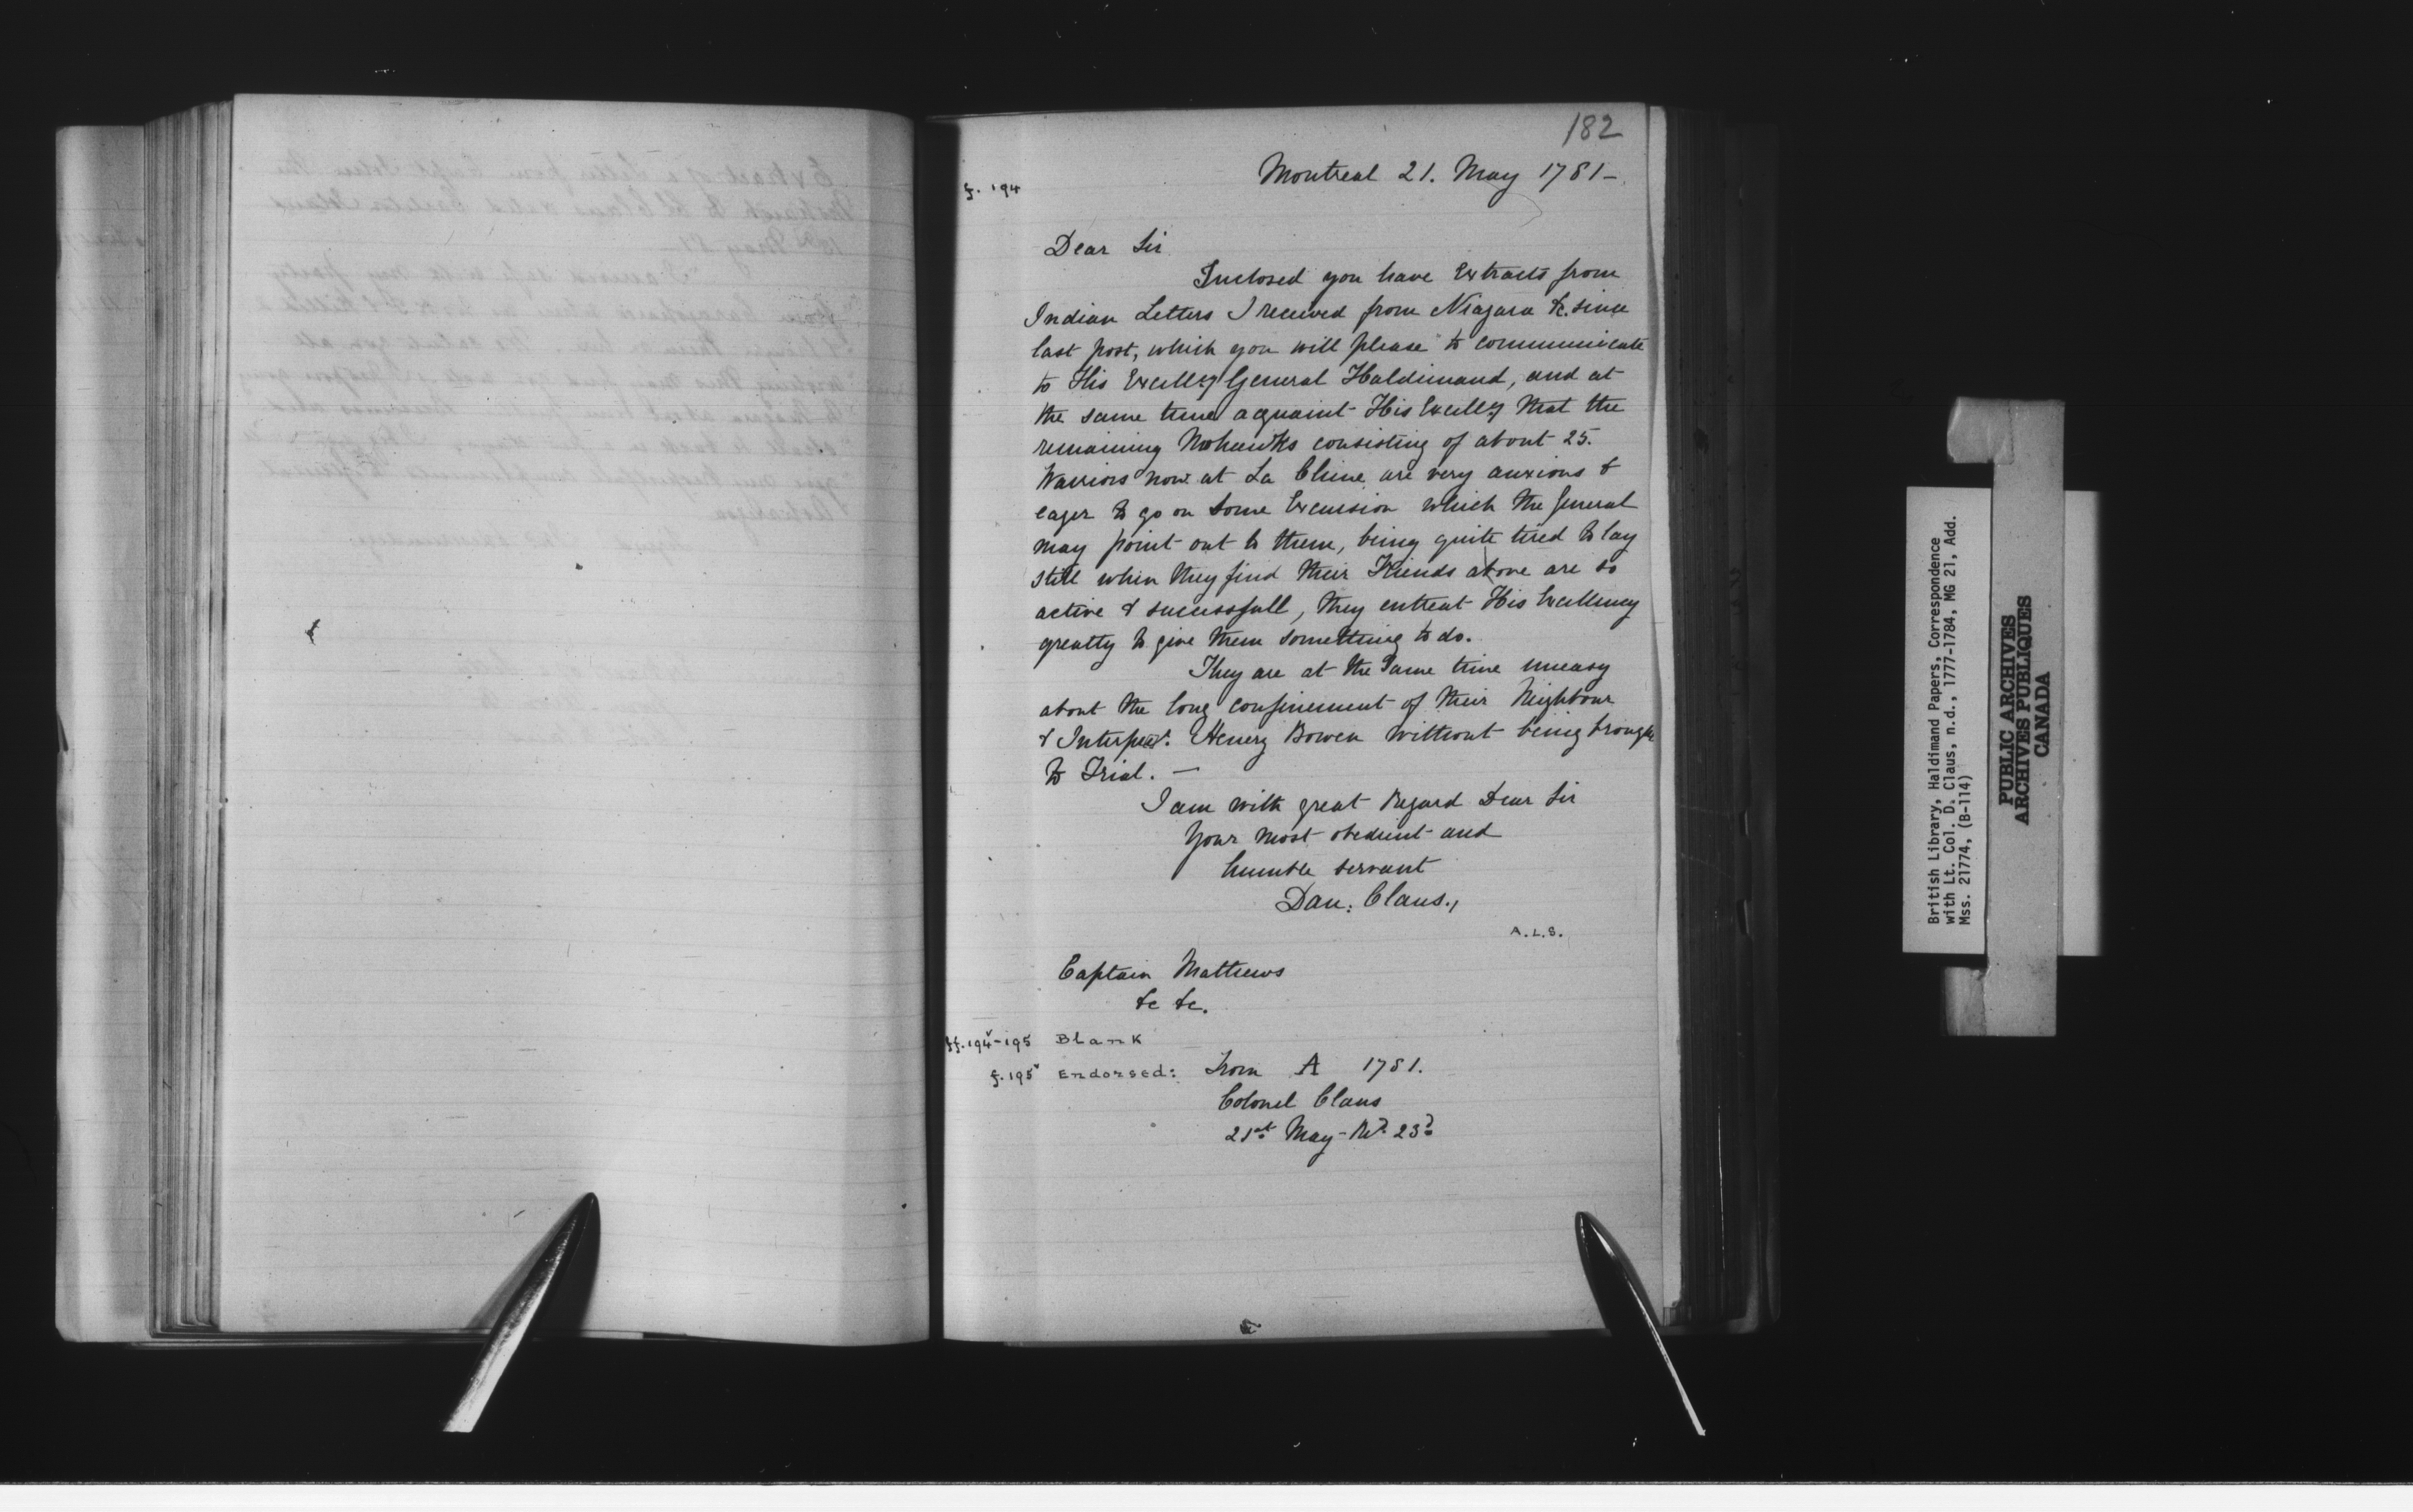 182
f. 194
Montreal 21. May 1781 -
Dear Sir
Inclosed you have Extracts from
Indian Letters I received from Niagara &c. since
last post, which you will please to communicate
to His Excellcy General Haldimand, and at
the same time acquaint His Excellcy that the
remaining Mohawks consisting of about 25.
Warriors now at La Chine are very anxious &
eager to go on some Excursion which the General
may point out to them, being quite tired to lay
still when they find their Friends above are so
active & successfull, they entreat His Excellency
greatly to give them something to do.
They are at the same time uneasy
about the long confinement of their Neighbour
& Interpret. Henery Bowen without being brought
to Trial. —
I am with great Regard Dear Sir
Your most obedient and
humble servant
Dan: Claus.,
A.L.S.
Captain Mathews
&c &c.
ff. 194v-195 Blank
f. 195v Endorsed: From A 1781.
Colonel Claus
21st May - Rd. 23d
British Library, Haldimand Papers, Correspondence
with Lt. Col. D. Claus, n.d., 1777-1784, MG 21, Add.
Mss. 21774, (B-114)
PUBLIC ARCHIVES
ARCHIVES PUBLIQUES
CANADA